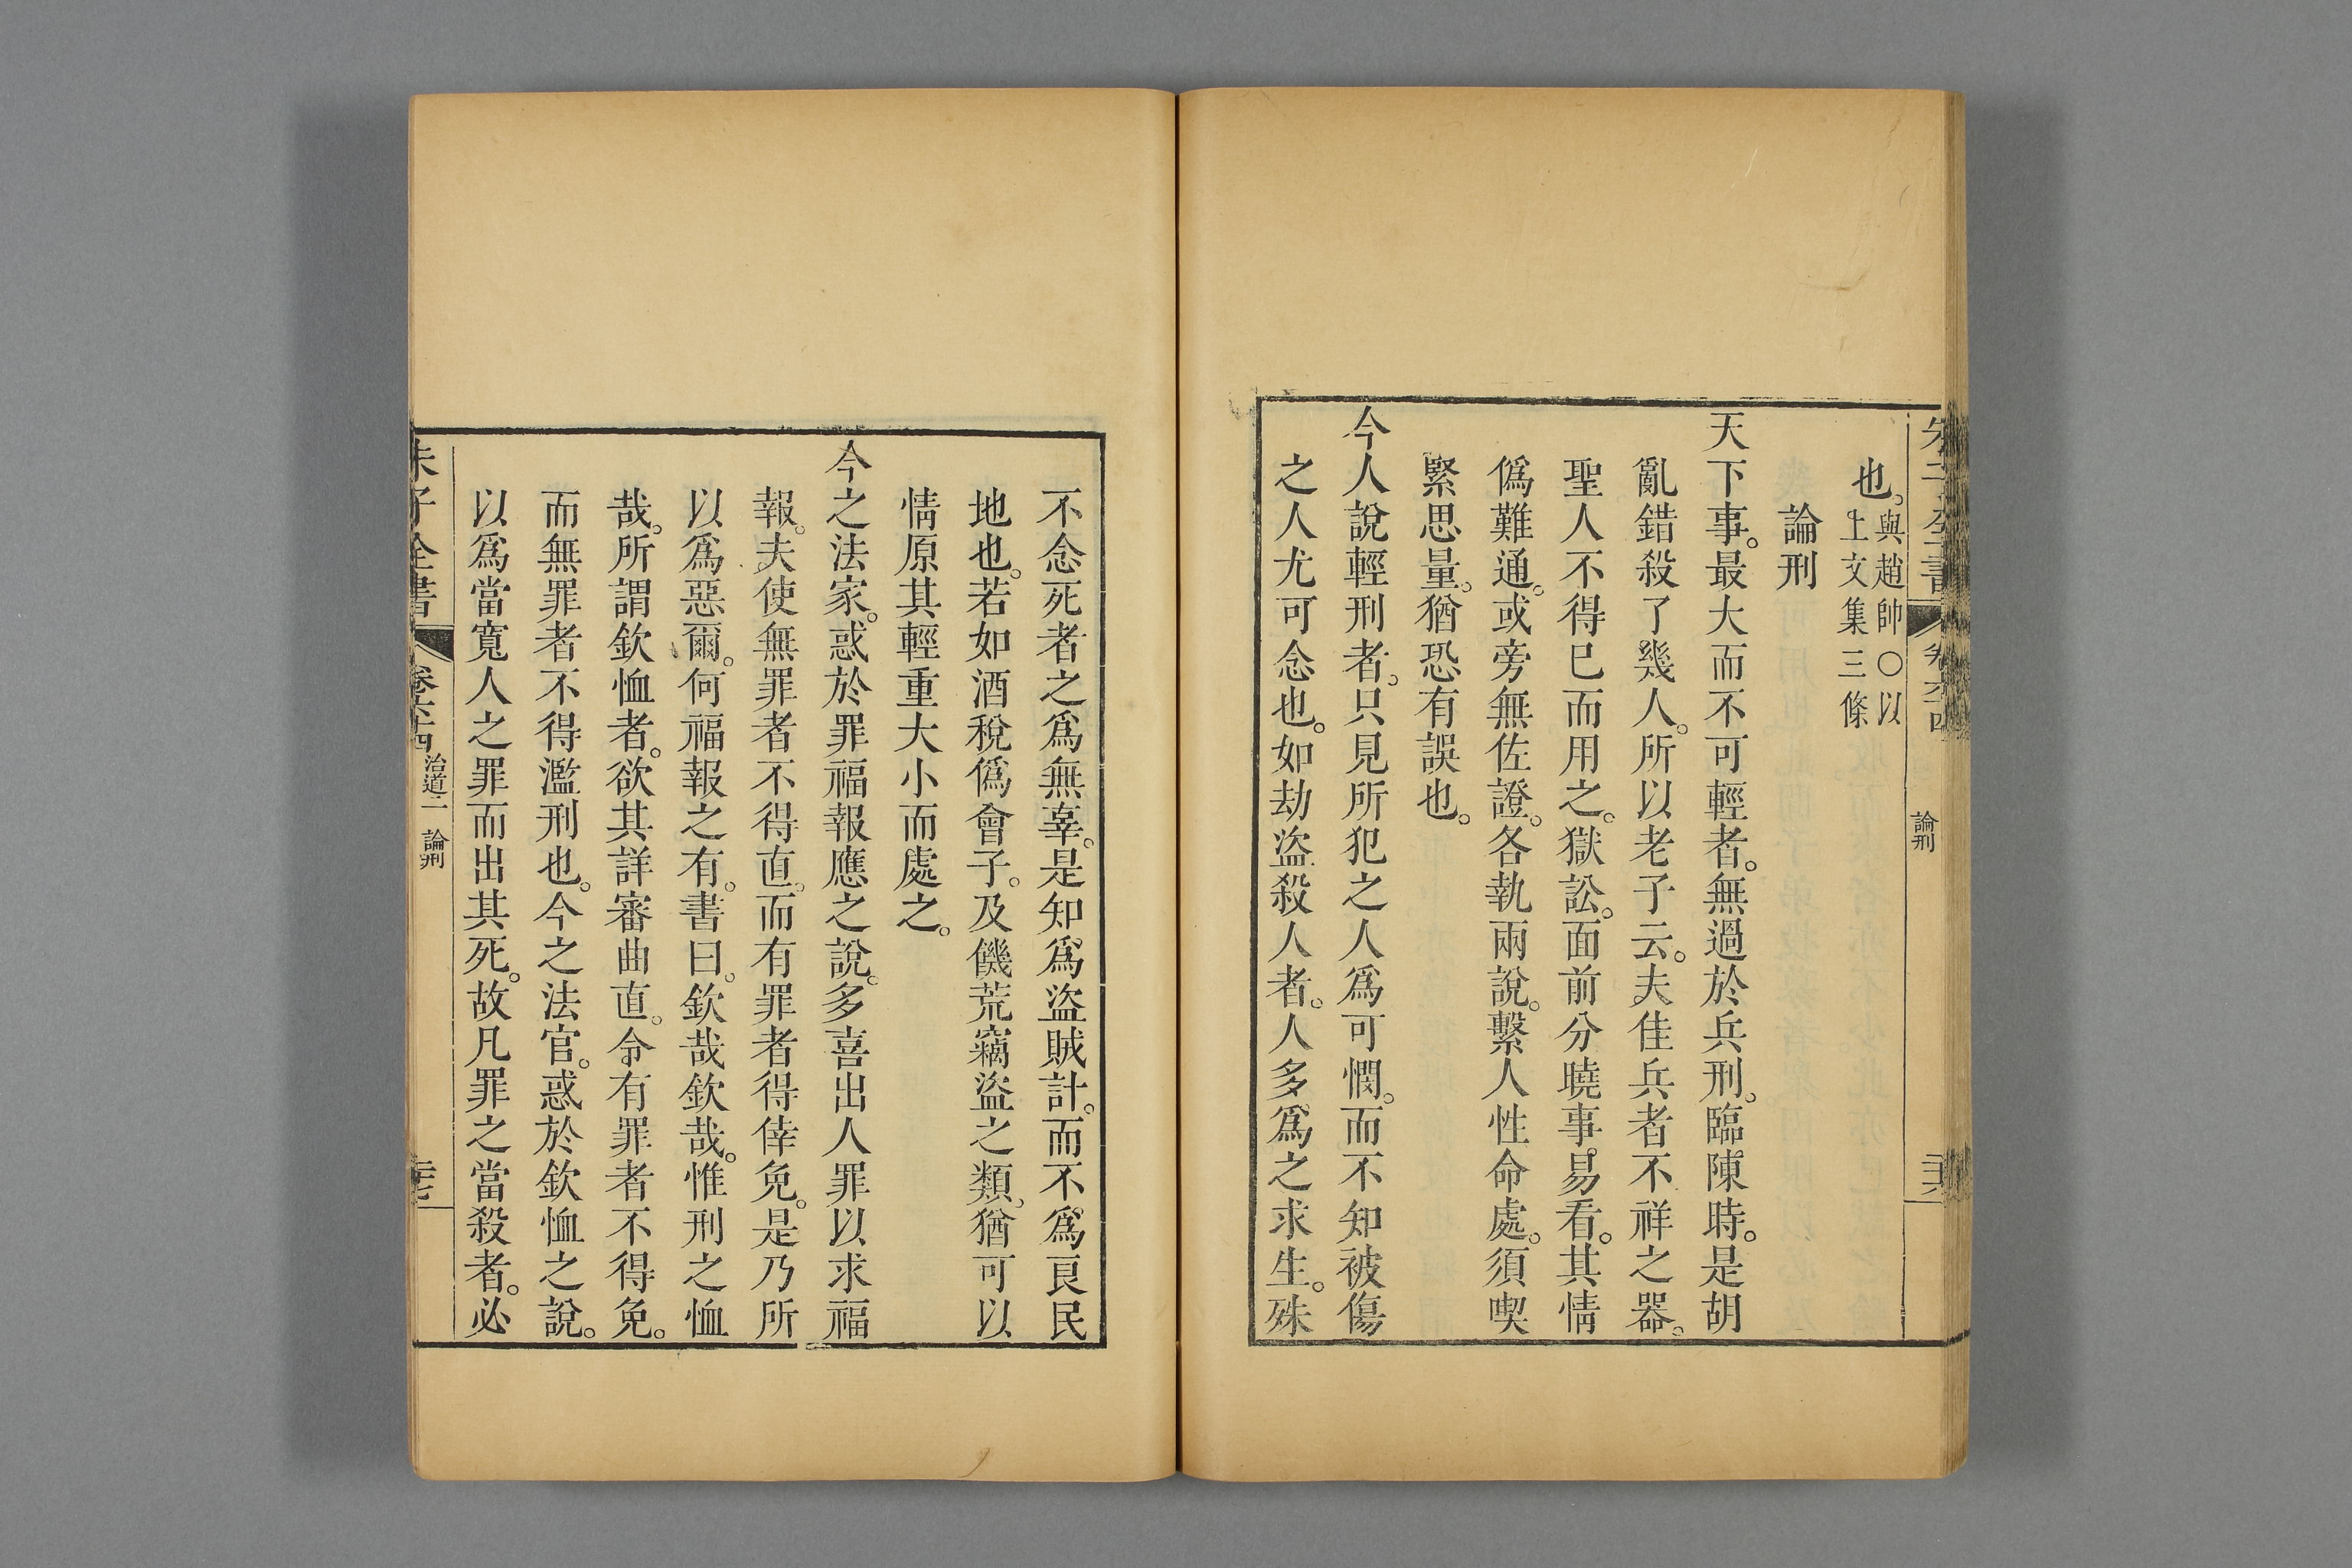 朱子全書 卷六十四 論刑 三六
也。與趙帥〇以
上文集三條
論刑
天下事。最大而不可輕者。無過於兵刑。臨陳時。是胡
亂錯殺了幾人。所以老子云。夫佳兵者不祥之器。
聖人不得已而用之。獄訟。面前分曉事。易看。其情
僞難通。或旁無佐證。各執兩說。繫人性命處。須喫
緊思量。猶恐有誤也。
今人說輕刑者。只見所犯之人爲可憫。而不知被傷
之人尤可念也。如劫盜殺人者。人多爲之求生。殊
不念死者之爲無辜。是知爲盜賊計。而不爲良民
地也。若如酒稅僞會子。及饑荒竊盜之類。猶可以
情原其輕重大小而處之。
今之法家。惑於罪福報應之說。多喜出人罪以求福
報。夫使無罪者不得直。而有罪者得倖免。是乃所
以爲惡爾。何福報之有。書曰。欽哉欽哉。惟刑之恤
哉。所謂欽恤者。欲其詳審曲直。令有罪者不得免。
而無罪者不得濫刑也。今之法官。惑於欽恤之說。
以爲當寬人之罪而出其死。故凡罪之當殺者。必
朱子全書 卷六十四 治道二 論刑